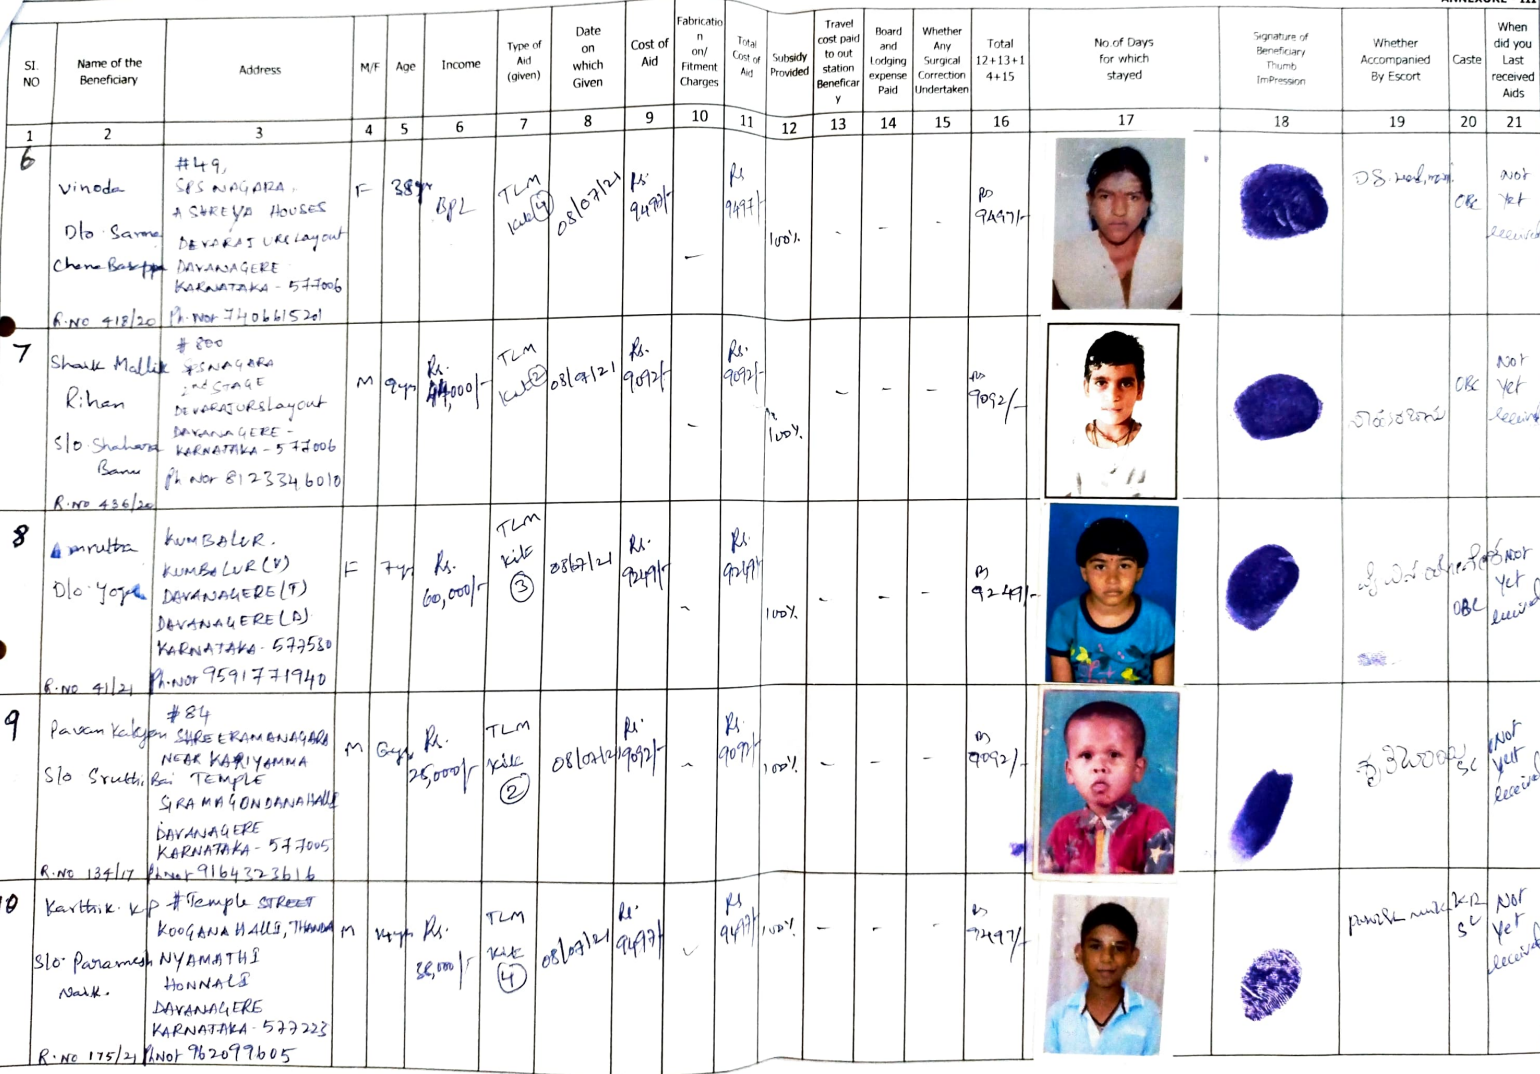 ANNEXURE - III
SI. NO
Name of the Beneficiary
Address
M/F
Age
Income
Type of Aid (given)
Date on which Given
Cost of Aid
Fabricatio n on/ Fitment Charges
Total Cost of Aid
Subsidy Provided
Travel cost paid to out station Beneficar y
Board and Lodging expense Paid
Whether Any Surgical Correction Undertaken
Total 12+13+1 4+15
No.of Days for which stayed
Signature of Beneficiary Thumb ImPression
Whether Accompanied By Escort
Caste
When did you Last received Aids
1 2 3 4 5 6 7 8 9 10 11 12 13 14 15 16 17 18 19 20 21
6
Vinoda
D/o Sarma
R.No 418/20
#49,
SPS NAGARA,
ASHREYA HOUSES
DEVARAJ URS Layout
DAVANAGERE
KARNATAKA - 577006
Ph. Nor 7406615201
F
38yr
BPL
TLM
Kit 4
08/07/21
Rs. 9497/-
-
Rs 9497/-
100%
-
-
-
Rs 9497/-
OBC
Not yet received
7
Shaik Mallik
Rihan
S/o Shahara
Banu
R.No 436/20
# 800
SPS NAGARA
2nd STAGE
DEVARAJ URS Layout
DAVANAGERE -
KARNATAKA - 577006
Ph Nor 8123346010
M
9yr
Rs. 44,000/-
TLM
Kit 2
08/07/21
Rs. 9092/-
-
Rs. 9092/-
100%
-
-
-
Rs 9092/-
OBC
Not yet received
8
Amrutha
D/o Yoge
R.No 41/21
KUMBALUR.
KUMBALUR (V)
DAVANAGERE (T)
DAVANAGERE (D)
KARNATAKA - 577530
Ph. Nor 9591771940
F
7yr
Rs. 60,000/-
TLM
Kit 3
08/7/21
Rs. 9249/-
-
Rs. 9249/-
100%
-
-
-
Rs 9249/-
OBC
Not yet received
9
Pavan Kalyan
S/o Sruthi Bai
R.No 134/17
# 84
SHREERAMANAGARA
NEAR KARIYAMMA
TEMPLE
SIRAMAGONDANAHALLI
DAVANAGERE
KARNATAKA - 577005
Ph Nor 9164323616
M
6yr
Rs. 25,000/-
TLM
Kit 2
08/07/21
Rs. 9092/-
-
Rs. 9092/-
100%
-
-
-
Rs 9092/-
SC
Not yet received
10
Karthik. K P
S/o Paramesh
Naik.
R.No 175/21
# Temple STREET
KOOGANAHALLI, THANDA
NYAMATHI
HONNALI
DAVANAGERE
KARNATAKA - 577223
Ph Nor 962099605
M
14yr
Rs. 38,000/-
TLM
Kit 4
08/07/21
Rs. 9497/-
-
Rs 9497/-
100%
-
-
-
Rs 9497/-
SC
Not yet received